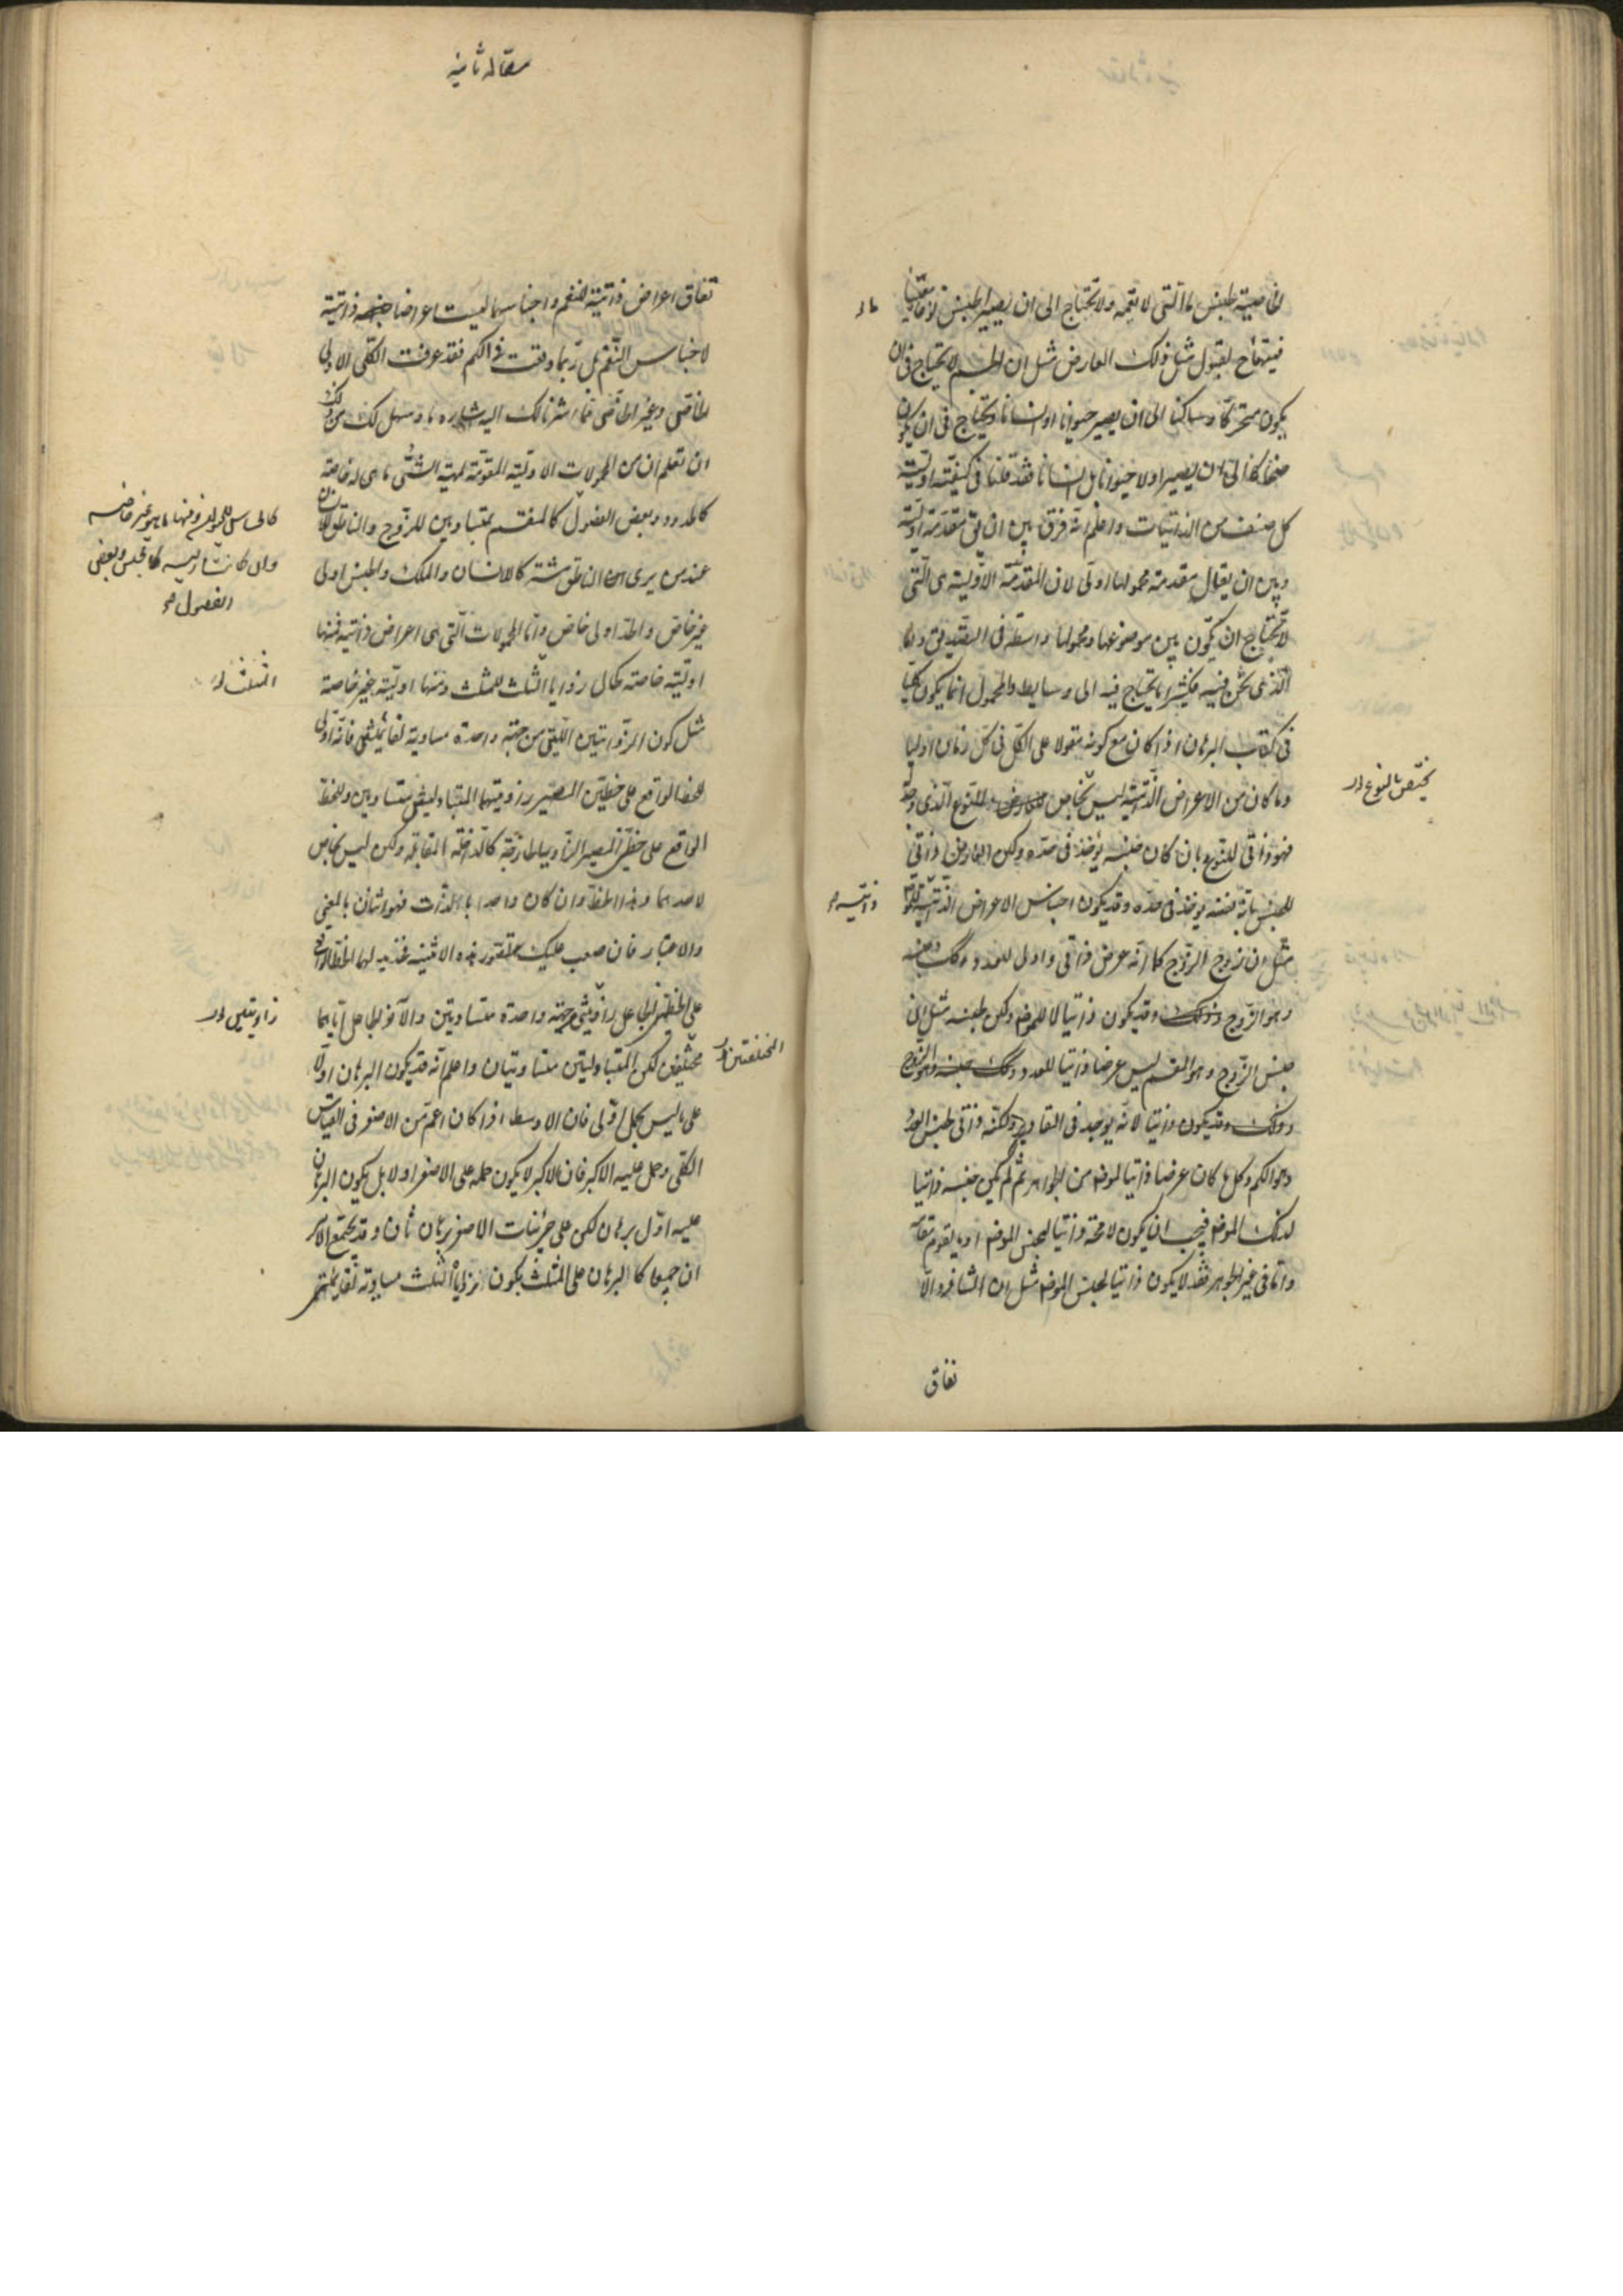 الخاصية طبنس ما التى لا تعمه ولا تحتاج الى ان يصير الجنس نوعا معينا
فيتهيأ لقبول مثل ذلك العارض مثل ان الجسم لا يحتاج فى ان
يكون متحركا وساكنا الى ان يصير حيوانا او انسانا ويحتاج فى ان يكون
ضحاكا الى ان يصير اولا حيوانا بل انسانا فقد قلنا فى كيفية اولية
كل صنف من الذاتيات واعلم انه فرق بين ان يق مقدمة اولية
وبين ان يقال مقدمة محمولها اولى لان المقدمة الاولية هى التى
لا تحتاج ان يكون بين موضوعها ومحمولها واسطة فى التصديق واما
الذى نحن فيه فكثيرا ما يحتاج فيه الى وسايط والمحمول انما يكون كليا
فى كتاب البرهان اذا كان مع كونه مقولا على الكل فى كل زمان اوليا
وما كان من الاعراض الذاتية ليس بخاص للنوع الذى
يختص بالنوع
فهو ذاتى للنوع بان كان جنسه يؤخذ فى حده ولكن العارض ذاتى
للجنس بانه بنفسه يوخذ فى حده وقد يكون اجناس الاعراض الذاتية
ذاتية
مثل ان زوج الزوج كما انه عرض ذاتى واولى للعدد وكك جنسه
وهو الزوج وقد يكون ذاتيا لا للموض ولكن لجنسه مثل ان
جنس الزوج وهو المنقسم ليس عرضا ذاتيا للعدد
وقد يكون ذاتيا لانه يوجد فى المقادير ولكنه ذاتى لجنس العدد
وهو الكم وكل ما كان عرضا ذاتيا لموض من الجواهر ثم لم يكن جنسه ذاتيا
لذلك الموض فيجب ان يكون لا محة ذاتيا لجنس الموض او ما يقوم مقامه
واما فى غير الجوهر فقد لا يكون ذاتيا لجنس الموض مثل ان التنافر والا
تفاق
مقاله ثانيه
تفاق اعراض ذاتية للنغم واجناسهما ليست اعراضا ذاتية
لاجناس النغم بل ربما وقعت فى الكم فقد عرفت الكلى الاولى
الخاص وغير الخاص مما اشرنا لك اليه وسهل لك من ذلك
ان تعلم ان من المحمولات الاولية المقومة لمهية الشئ ما هى له خاصة
كالحدود وبعض الفصول كالمنقسم بمتساويين للزوج والناطق
كالحساس للحيوان ومنها ما هو غير خاصه
وان كانت اوليه كالجنس وبعض
الفصول
عند من يرى ان الناطق مشترك كالانسان والملك والجنس اولى
غير خاص والحد اولى خاص واما المحمولات التى هى اعراض ذاتية فمنها
اولية خاصة كحال زوايا المثلث للمثلث ومنها اولية غير خاصة
المثلث
مثل كون الزاويتين اللتين من جهة واحدة مساوية لقائمتين فانه اولى
للخط الواقع على خطين المصير زاويتيهما المتبادلتين متساويين وللخط
الواقع على خطين المصير الزاوية الخارجة كالداخلة المقابلة ولكن ليس بخاص
لاحدهما وهذا الخط وان كان واحدا بالذات فهو اثنان بالمعنى
والاعتبار فان صعب عليك تصور هذه الاثنينية فخذ بدلهما الخط الواقع
على الخطين الجاعل زاويتى جهة واحدة متساويتين والآخر الجاعل اياهما
زاويتين
مختلفتين لكن المتبادلتين متساويتان واعلم انه قد يكون البرهان اولا
المختلفتين
على ما ليس بحمل اولى فان الاوسط اذا كان اعم من الاصغر فى القياس
الكلى وحمل عليه الاكبر فان الاكبر لا يكون حمله على الاصغر اولا بل يكون البرهان
عليه اول برهان لكن على جزئيات الاصغر برهان ثان وقد يجتمع الامر
ان جميعا كالبرهان على المثلث بكون زوايا المثلث مساوية لقائمتين